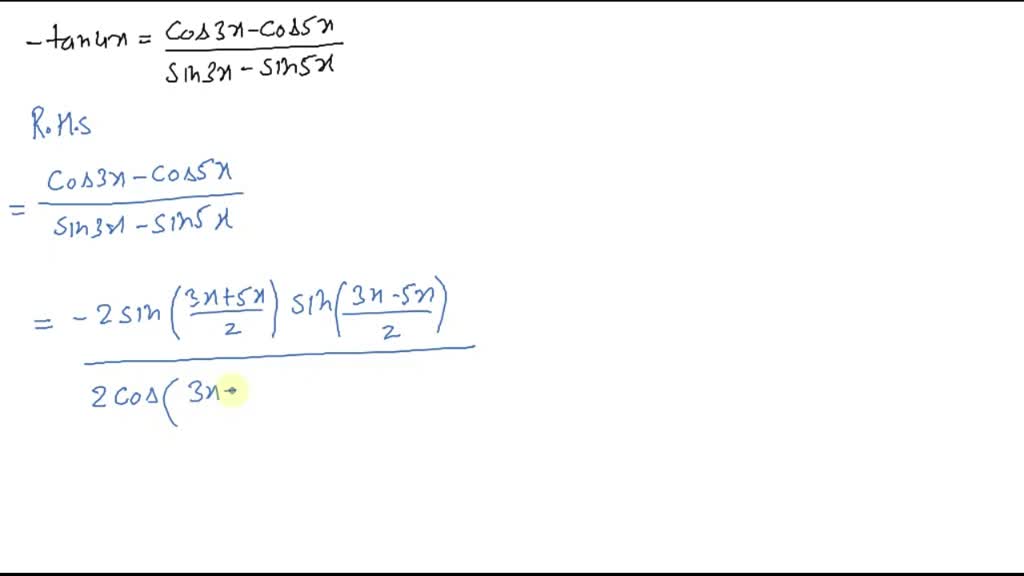 -tan4x = cos3x-cos5x / sin3x - sin5x
R.H.S
= cos3x - cos5x / sin3x - sin5x
= -2 sin (3x+5x / 2) sin (3x-5x / 2)
2 cos ( 3x